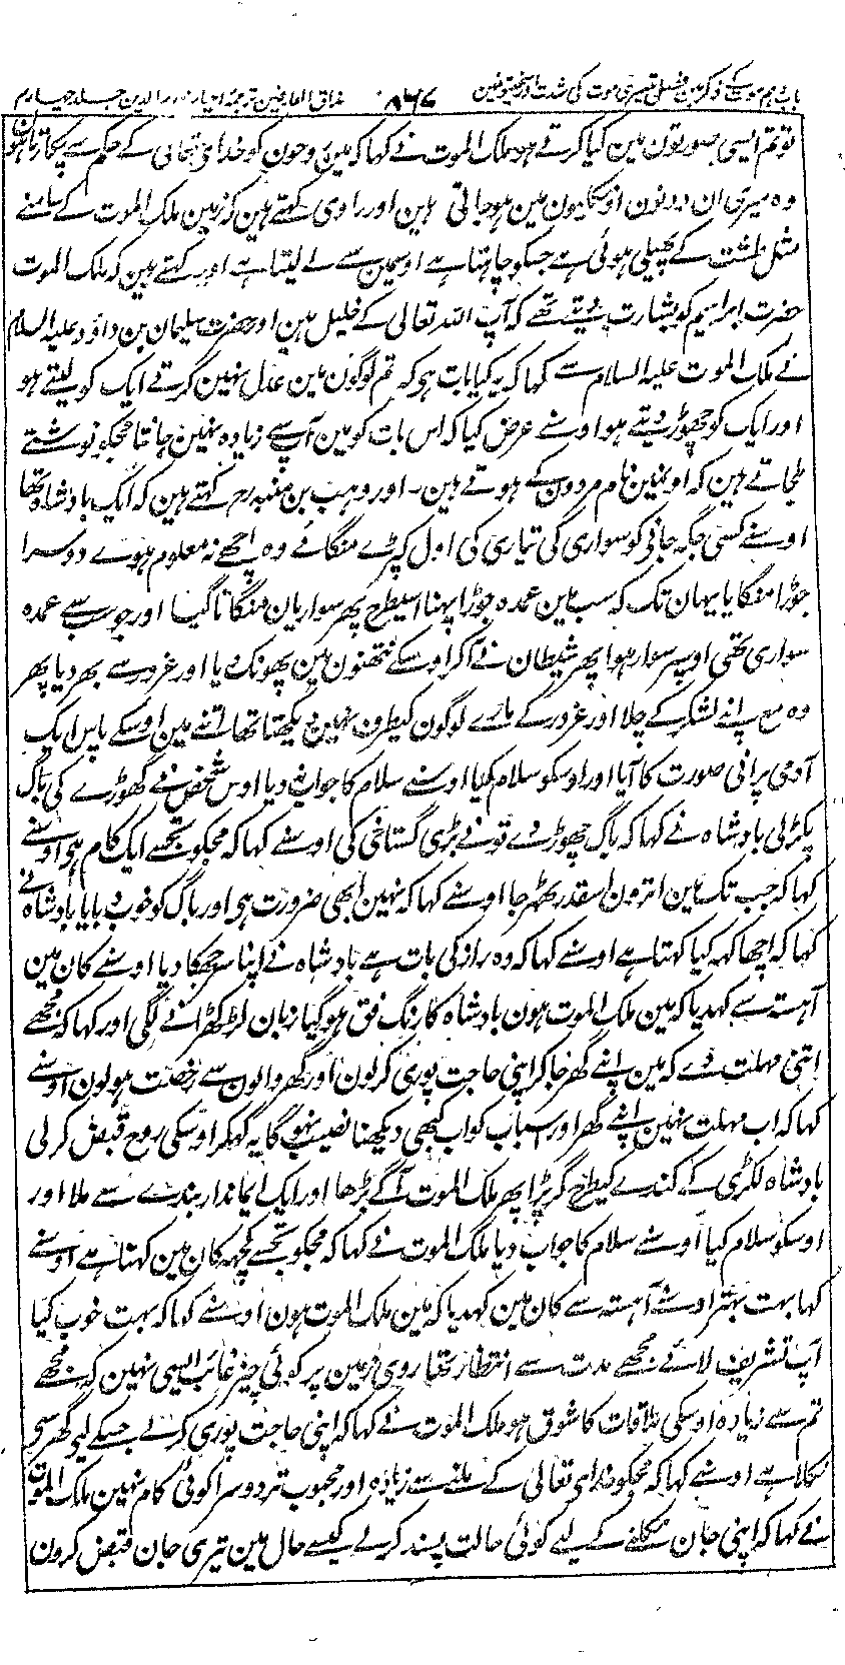 باب دہم موت کے ذکر میں فصل تیسری موت کی شدت اور سختیوں میں ۸۶۷ مذاق العارفین ترجمہ احیاء علوم الدین جلد چہارم
تو تم ایسی صورتون مین کیا کرتے ہو ملک الموت نے کہا کہ مین روحون کو خداے تعالی کے حکم سے پکارتا ہون
وہ میری ان دونون اونگلیون مین ہو جاتی ہین اور راوی کہتے ہین کہ زمین ملک الموت کے سامنے
مثل طشت کے پھیلی ہوئی ہے جسکو چاہتا ہے اوسمین سے لے لیتا ہے اور کہتے ہین کہ ملک الموت
حضرت ابراہیم کو بشارت دیتے تھے کہ آپ اللہ تعالی کے خلیل ہین اور حضرت سلیمان بن داؤد علیہ السلام
نے ملک الموت علیہ السلام سے کہا کہ یہ کیا بات ہی کہ تم لوگون مین عدل نہین کرتے ایک کو لیتے ہو
اور ایک کو چھوڑ دیتے ہو اوسنے عرض کیا کہ اس بات کو مین آپ سے زیادہ نہین جانتا مجھکو نوشتے
ملجاتے ہین کہ اونہین نام مردون کے ہوتے ہین۔ اور وہب بن منبہ رح کہتے ہین کہ ایک بادشاہ تھا
اوسنے کسی جگہ جانیکو سواری کی تیاری کی اول کپڑے منگائے وہ اچھے نہ معلوم ہوے دوسرا
جوڑا منگایا یہان تک کہ سب مین عمدہ جوڑا پہنا اسیطرح پھر سواریان منگاتا گیا اور جو سب سے عمدہ
سواری تھی اوسپر سوار ہوا پھر شیطان نے آکر اوسکے نتھنون مین پھونک دیا اور غرور سے بھر دیا پھر
وہ مع اپنے لشکر کے چلا اور غرور کے مارے لوگون کیطرف نہین دیکھتا تھا اتنے مین اوسکے پاس ایک
آدمی پرانی صورت کا آیا اور اوسکو سلام کیا اوسنے سلام کا جواب نہ دیا اوس شخص نے گھوڑے کی باگ
پکڑ لی بادشاہ نے کہا کہ باگ چھوڑ دے تونے بڑی گستاخی کی اوسنے کہا کہ مجکو تجھسے ایک کام ہی اوسنے
کہا کہ جب تک مین اترون اسقدر ٹھہر جا اوسنے کہا کہ نہین ابھی ضرورت ہی اور باگ کو خوب دبایا بادشاہ نے
کہا کہ اچھا کہہ کیا کہتا ہے اوسنے کہا کہ وہ راز کی بات ہے بادشاہ نے اپنا سر جھکا دیا اوسنے کان مین
آہستہ سے کہدیا کہ مین ملک الموت ہون بادشاہ کا رنگ فق ہو گیا زبان لڑکھڑانے لگی اور کہا کہ مجھے
اتنی مہلت دے کہ مین اپنے گھر جا کر اپنی حاجت پوری کر لون اور گھر والون سے رخصت ہو لون اوسنے
کہا کہ اب مہلت نہین اپنے گھر اور اسباب کو اب کبھی دیکھنا نصیب نہوگا یہ کہکر اوسکی روح قبض کر لی
بادشاہ لکڑی کے کندے کیطرح گر پڑا پھر ملک الموت آگے بڑھا اور ایک ایماندار بندے سے ملا اور
اوسکو سلام کیا اوسنے سلام کا جواب دیا ملک الموت نے کہا کہ مجکو تجھسے کچھ کان مین کہنا ہے اوسنے
کہا بہت بہتر اوسنے آہستہ سے کان مین کہدیا کہ مین ملک الموت ہون اوسنے کہا کہ بہت خوب کیا
آپ تشریف لائے مجھے مدت سے انتظار تھا روی زمین پر کوئی چیز غائب ایسی نہین کہ مجھے
تم سے زیادہ اوسکی ملاقات کا شوق ہو ملک الموت نے کہا کہ اپنی حاجت پوری کر لے جسکے لیے گھر سے
نکلا ہے اوسنے کہا کہ مجکو خداے تعالی کے ملنے سے زیادہ اور محبوب تر دوسرا کوئی کام نہین ملک الموت
نے کہا کہ اپنی جان نکلنے کے لیے کوئی حالت پسند کر لے کیسے حال مین تیری جان قبض کرون